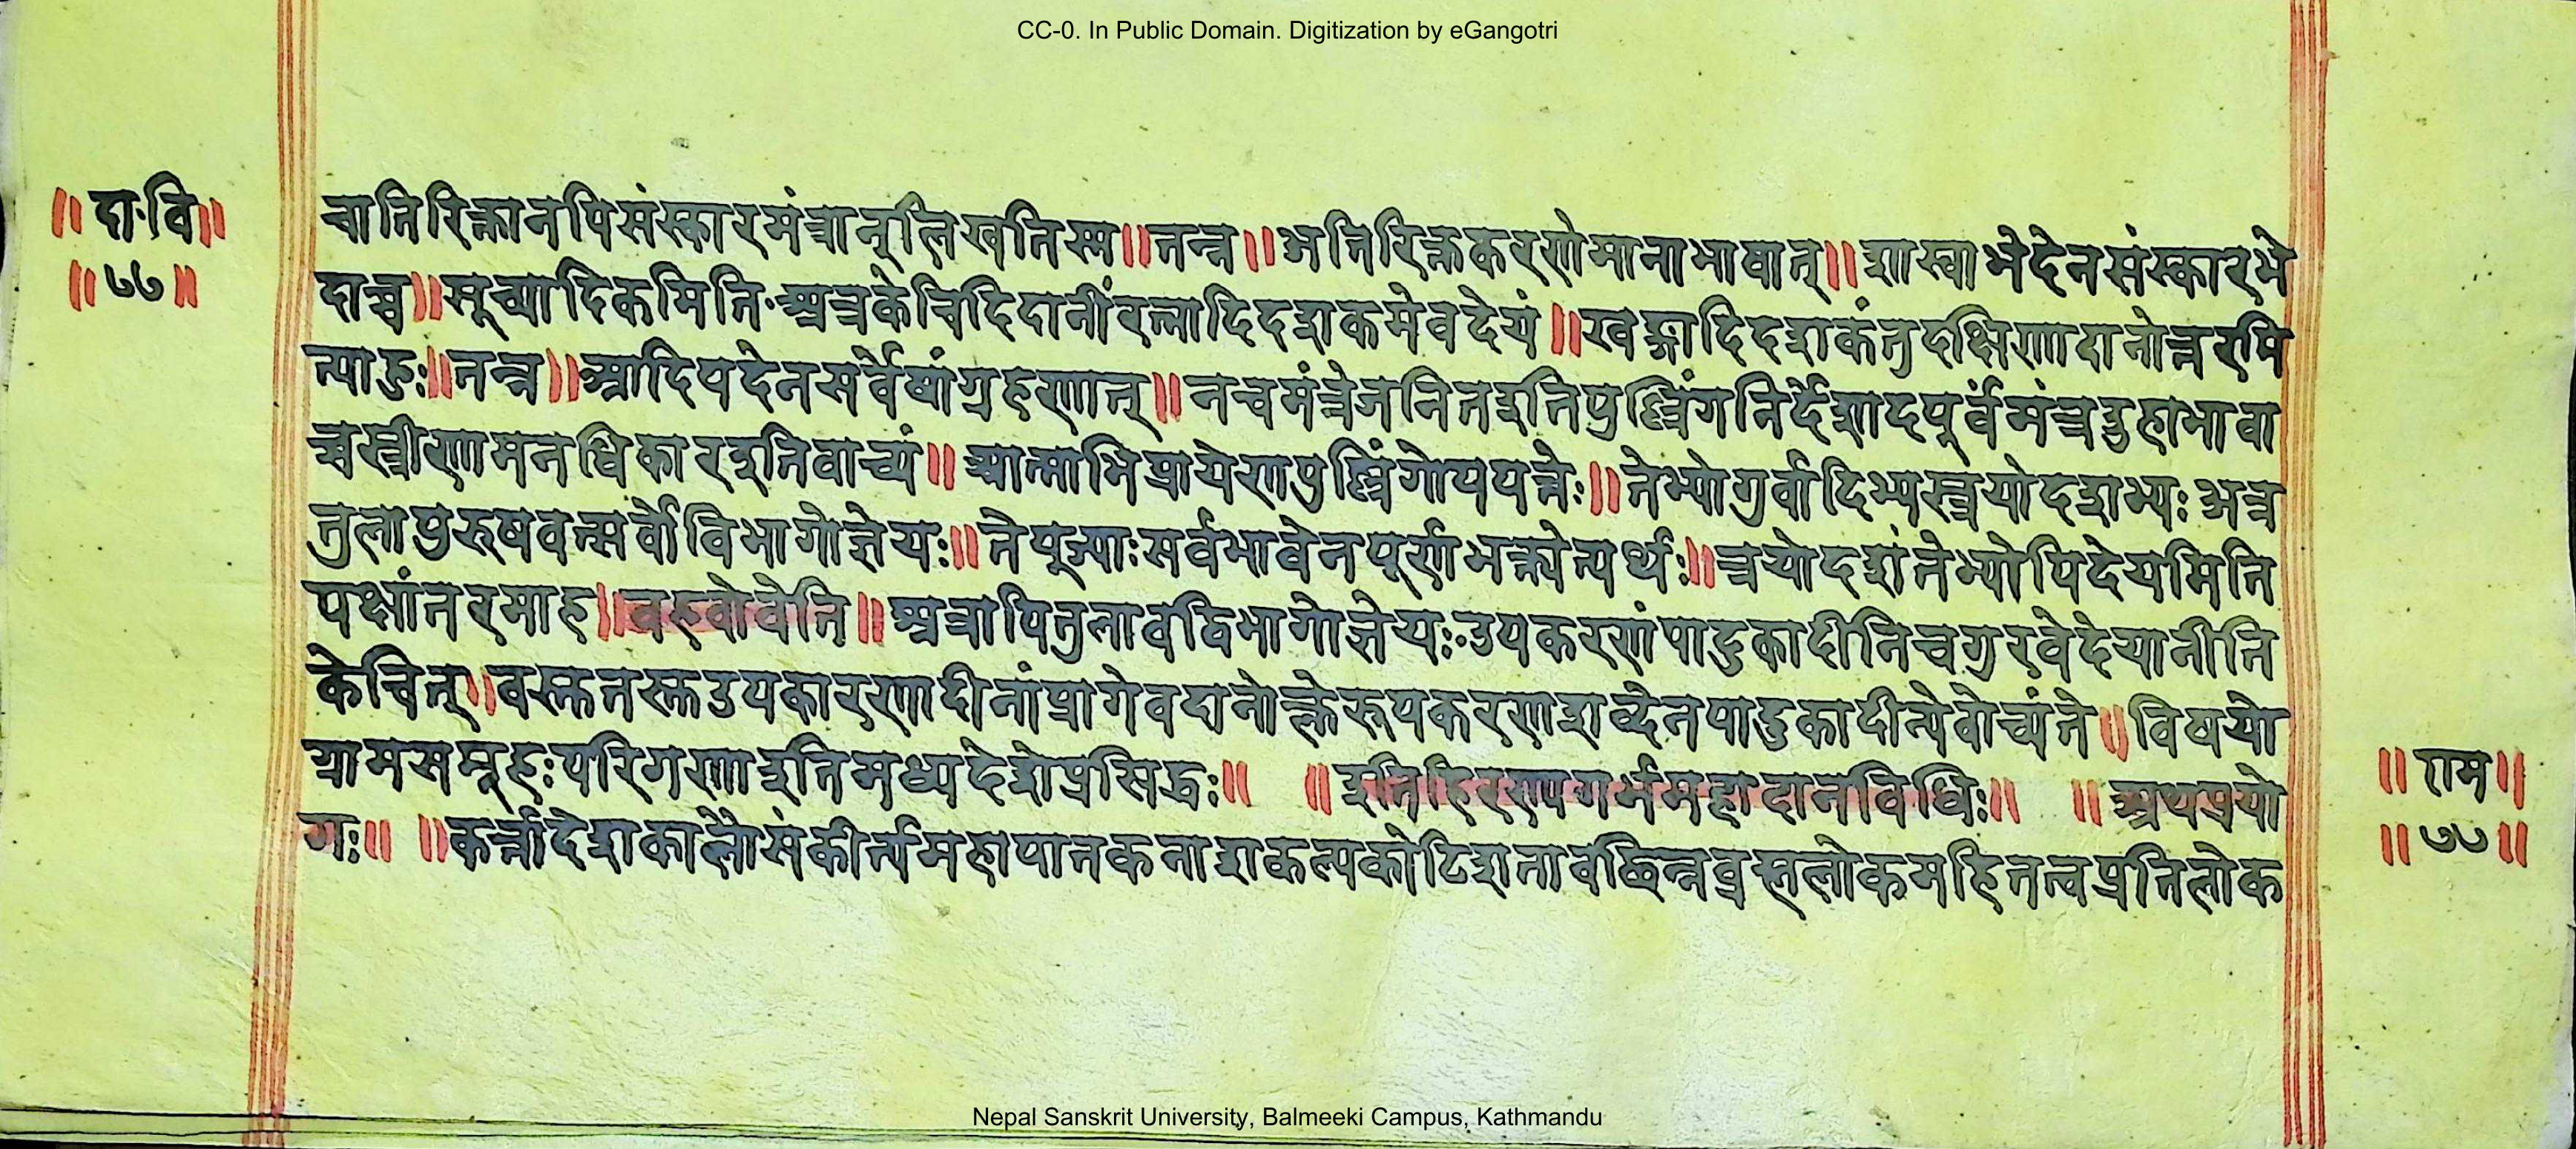 CC-0. In Public Domain. Digitization by eGangotri
॥ दा॰वि॥
॥ ७७ ॥
चातिरिक्तानपिसंस्कारमंत्रानूलिखतिस्म॥तन्न॥अतिरिक्तकरणेमानाभावात्॥शास्वाभेदेनसंस्कारभे
दाच्च॥सूच्यादिकमिति॰अत्रकेचिदिदानींरत्नादिदशकमेवदेयं॥खङ्गादिदशकंतुदक्षिणादानोत्तरमि
त्याहुः॥तन्न॥आदिपदेनसर्वेषांग्रहणात्॥नचमंत्रेजनितइतिपुल्लिंगनिर्देशादपूर्वमंत्रइहाभावा
च्चस्त्रीणामनधिकारइतिवाच्यं॥आत्माभिप्रायेणपुल्लिंगोपपत्तेः॥तेभ्योगुर्वादिभ्यस्त्रयोदशभ्यः अत्र
तुलापुरुषवत्सर्वोविभागोज्ञेयः॥तेपूज्याःसर्वभावेनपूर्णभक्त्येत्यर्थः॥त्रयोदशंतेभ्योपिदेयमिति
पक्षांतरमाह॥वहवोवेति॥अत्रापितुलावद्विभागोज्ञेयः॰उपकरणंपादुकादीनिचगुरवेदेयानीति
केचित्॥वस्तुतस्तुउपकारणादीनांप्रागेवदानोक्तेरूपकरणशब्देनपादुकादीन्येवोच्यंते॥विषयो
ग्रामसमूहःपरिगणाइतिमध्यदेशेप्रसिद्धः॥ ॥इतिहिरण्यगर्भमहादानविधिः॥ ॥अथप्रयो
गः॥ ॥कर्त्तादेशकालौसंकीर्त्यमहापातकनाशकल्पकोटिशतावछिन्नब्रह्मलोकमहितत्वप्रतिलोक
॥ राम॥
॥ ७७ ॥
Nepal Sanskrit University, Balmeeki Campus, Kathmandu